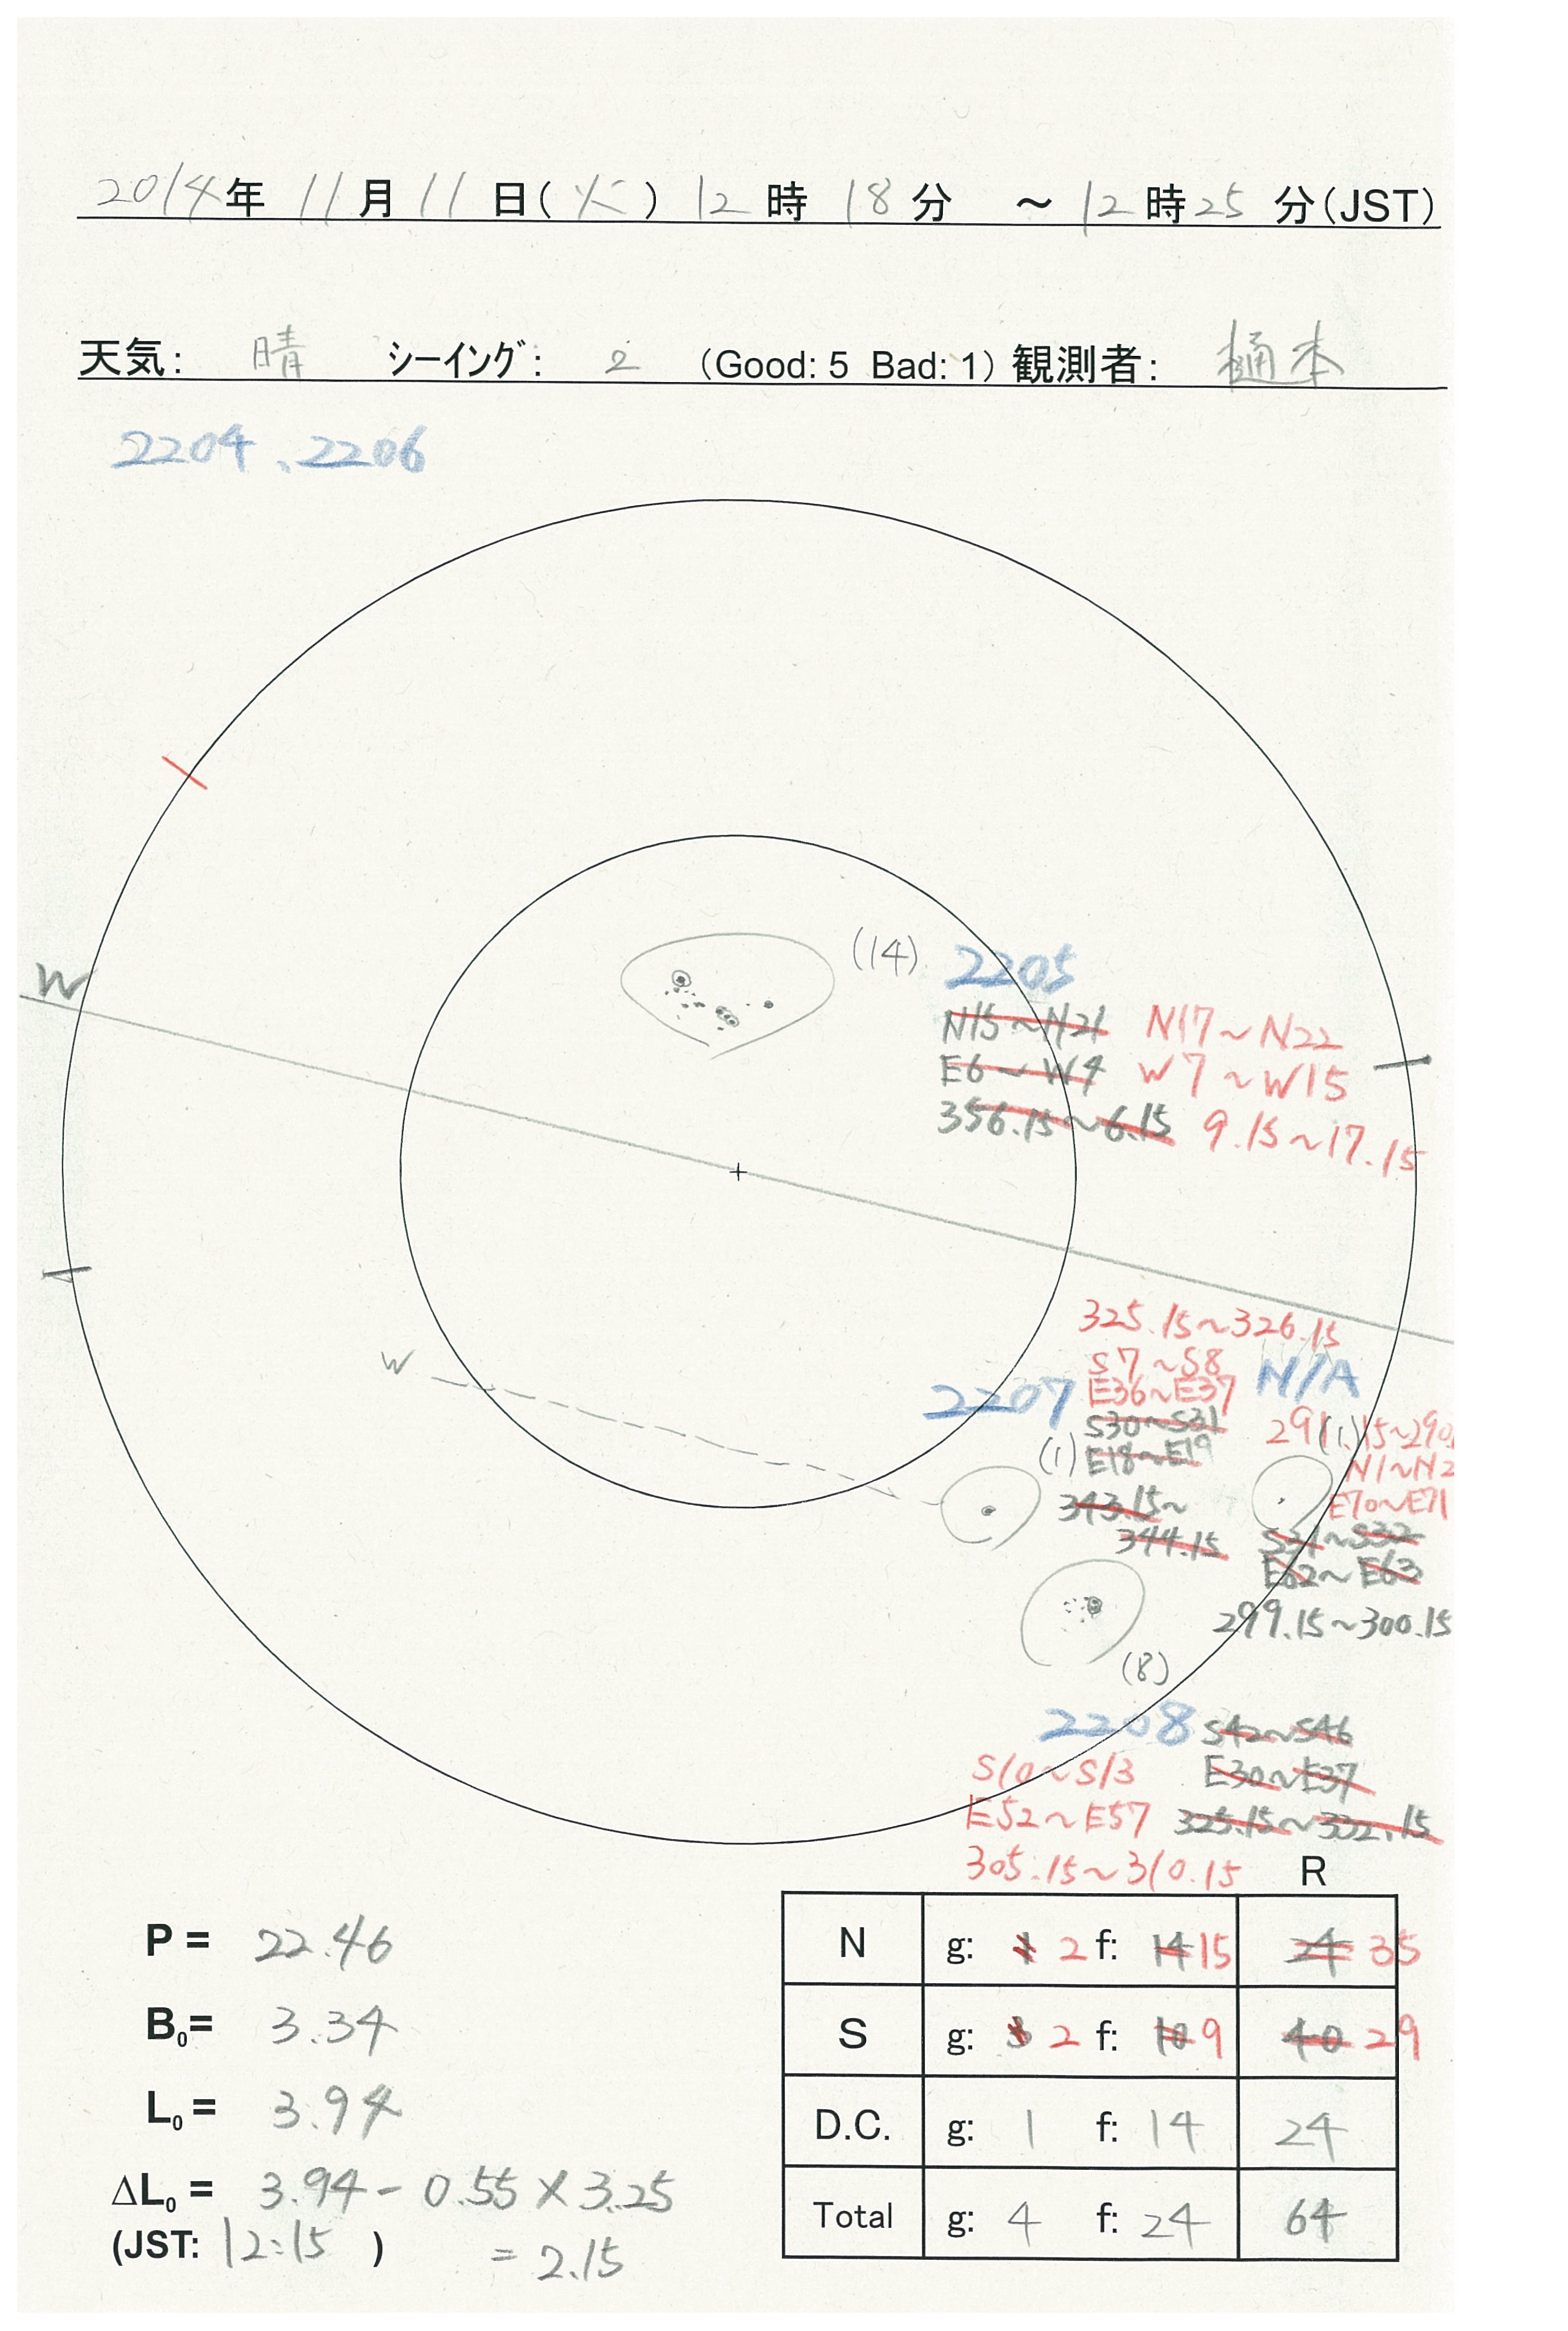 2014年 11月 11日(火) 12時 18分 ～12時25分(JST)
天気: 晴 シーイング: 2 (Good: 5 Bad: 1) 観測者: 樋本
2204、2206
W
(14) 2205
N15～N21 N17～N22
E6～W4 W7～W15
356.15～6.15 9.15～17.15
325.15～326.15
W
2207 S7～S8 N/A
E36～E37
S30～S31 291.15～290.
(1) E18～E19 (1) N1～N2
343.15～ E70～E71
344.15 S31～S32
E62～E63
299.15～300.15
(8)
2208 S42～S46
S10～S13 E30～E37
E52～E57 325.15～332.15
305.15～310.15 R
P = 22.46
B0= 3.34
L0= 3.94
ΔL0= 3.94 - 0.55 × 3.25
(JST: 12:15 ) = 2.15
N g: 1 2 f: 14 15 24 35
S g: 3 2 f: 10 9 40 29
D.C. g: 1 f: 14 24
Total g: 4 f: 24 64